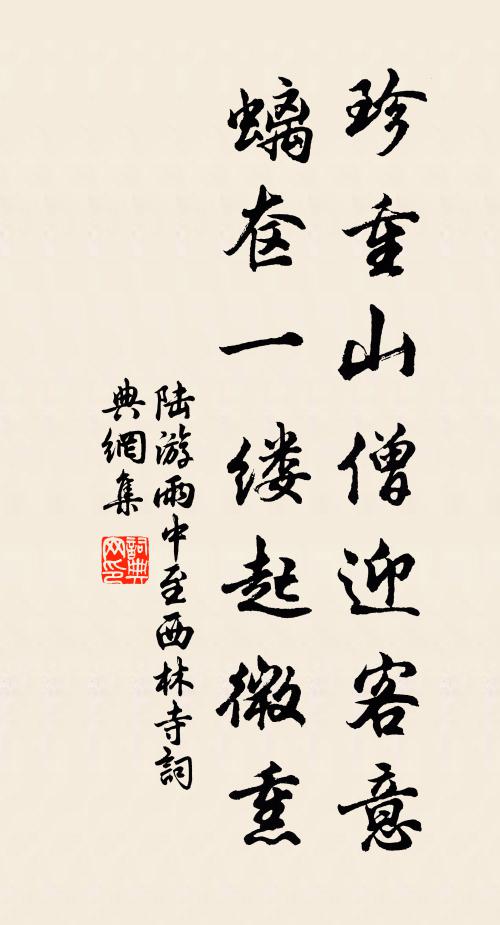 珍重山僧迎客意
螭奁一缕起微熏
陆游雨中至西林寺詞
典網集
詞典网印